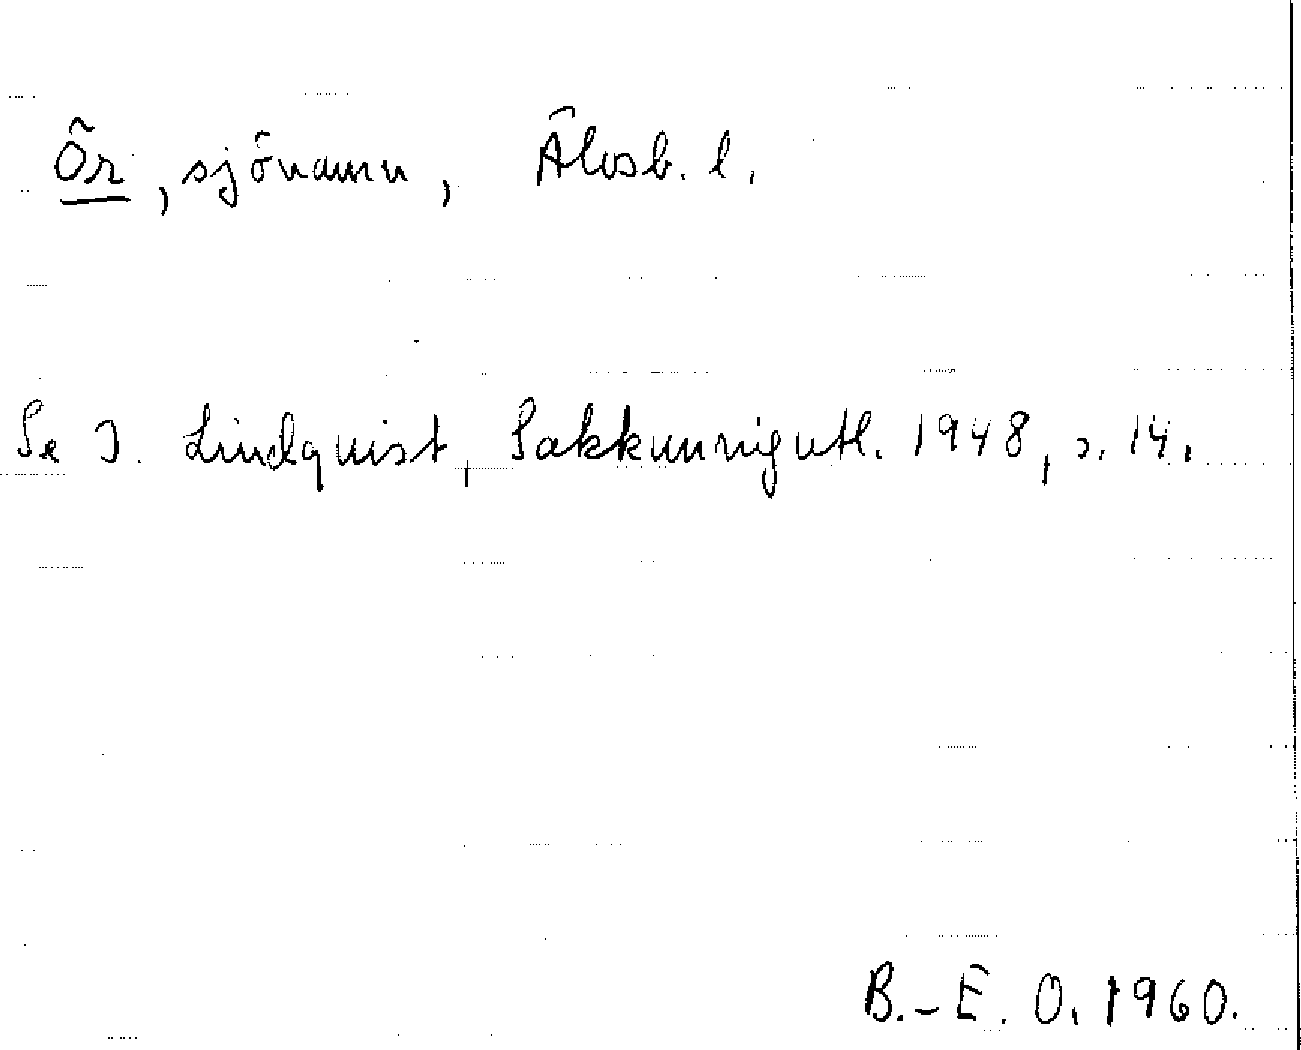 Ör, sjönamn, Älvsb. l.
Se I. Lindquist, Sakkunnigutl. 1948, s. 14.
B.-E. O. 1960.